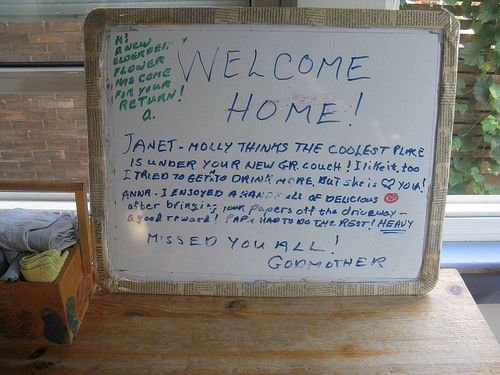 Hi
A NEW
ELDERBERRY
FLOWER
HAS COME
FOR YOUR
RETURN!
Q.
WELCOME
HOME!
JANET - MOLLY THINKS THE COOLEST PLACE
IS UNDER YOUR NEW GR. COUCH! I like it, too
I TRIED TO GET "to DRINK MORE, BUT she is ♡ YOU!
ANNA - I ENJOYED A HANDFull of DELICIOUS
after bringing your papers off the driveway -
a good reward! PAPA HAD TO DO THE REST! HEAVY
MISSED YOU ALL!
GODMOTHER